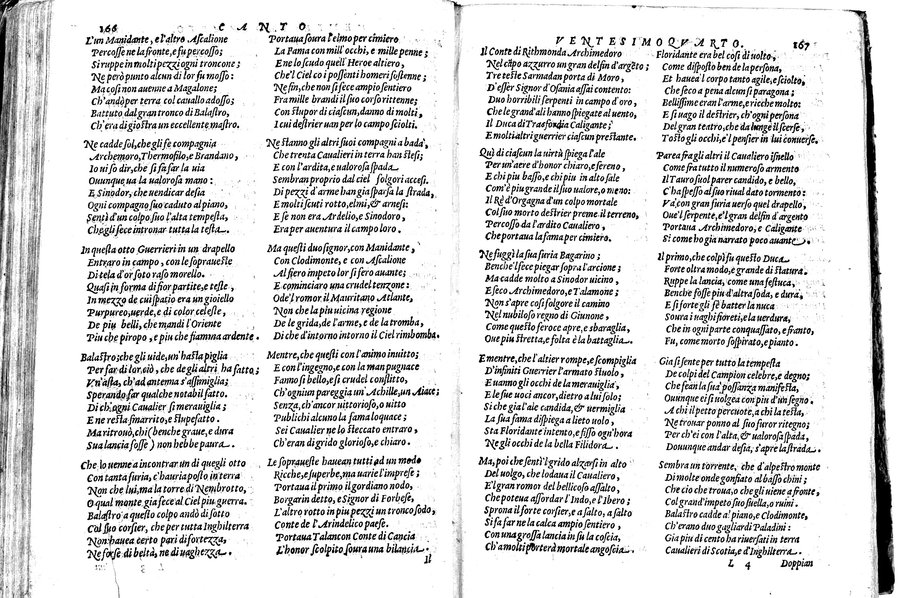 166 CANTO
L'un Manidante, e l'altro Ascalione
Percosse ne la fronte, e fu percosso;
Si ruppe in molti pezzi ogni troncone;
Ne però punto alcun di lor fu mosso:
Ma così non auenne a Magalone;
Ch'andò per terra col cauallo adosso;
Battuto dal gran tronco di Balastro,
Ch'era di giostra un eccellente mastro.
Ne cadde sol, che gli fe compagnia
Archemoro, Thermofilo, e Brandano,
Io ui so dir, che si fa far la uia
Ouunque ua la ualorosa mano:
E Sinodor, che uendicar desia
Ogni compagno suo caduto al piano,
Sentì d'un colpo suo l'alta tempesta,
Che gli fece intronar tutta la testa.
In questa otto Guerrieri in un drapello
Entraro in campo, con le soprauеste
Di tela d'or soto raso morello.
Quasi in forma di fior partite, e teste,
In mezzo de cui spatio era un gioiello
Purpureo, uerde, e di color celeste,
De piu belli, che mandi l'Oriente
Piu che piropo, e piu che fiamma ardente.
Balastro, che gli uide, un'hasta piglia
Per far di lor, ciò, che de gli altri ha fatto;
Vn'asta, ch'ad antenna s'assimiglia;
Sperando far qualche notabil fatto.
Di ch'ogni Caualier si merauiglia;
E ne resta smarrito, e stupefatto.
Ma ritrouò, chi (benche graue, e dura
Sua lancia fosse) non hebbe paura.
Che lo uenne a incontrar un di quegli otto
Con tanta furia, c'hauria posto in terra
Non che lui, ma la torre di Nembrotto,
O qual monte gia fece al Ciel piu guerra.
Balastro a questo colpo andò di sotto
Col suo corsier, che per tutta Inghilterra
Non hauea certo pari di fortezza,
Ne forse di beltà, ne di uaghezza.
Portaua soura l'elmo per cimiero
La Fama con mill'occhi, e mille penne;
Ene lo scudo quell'Heroe altiero,
Che'l Ciel co i possenti homeri sostenne;
Ne fin, che non si fece ampio sentiero
Fra mille brandi il suo corso rittenne;
Con stupor di ciascun, danno di molti,
I cui destrier uan per lo campo sciolti.
Ne stanno gli altri suoi compagni a bada,
Che trenta Caualieri in terra han stesi;
E con l'ardita, e ualorosa spada
Sembran proprio dal ciel folgori accesi.
Di pezzi d'arme han gia sparsa la strada,
E molti scuti rotto, elmi, & arnesi:
E se non era Ardelio, e Sinodoro,
Era per auentura il campo loro.
Ma questi duo signor, con Manidante,
Con Clodimonte, e con Ascalione
Al fiero impeto lor si fero auante;
E cominciaro una crudel tenzone:
Ode'l romor il Mauritano Atlante,
Non che la piu uicina regione
De le grida, de l'arme, e de la tromba,
Di che d'intorno intorno il Ciel rimbomba.
Mentre, che questi con l'animo inuitto;
E con l'ingegno, e con la man pugnace
Fanno sì bello, e sì crudel conflitto,
Ch'ogniun pareggia un'Achille, un Aiace;
Senza, ch'ancor uittorioso, o uitto
Publichi alcuno la fama loquace;
Sei Caualier ne lo steccato entraro,
Ch'eran di grido glorioso, e chiaro.
Le soprauеste hauean tutti ad un modo
Ricche, e superbe, ma uarie l'imprese;
Portaua il primo il gordiano nodo,
Borgarin detto, e Signor di Forbese,
L'altro rotto in piu pezzi un tronco sodo,
Conte de l'Arindelico paese.
Portaua Talancon Conte di Cancia
L'honor scolpito soura una bilancia.
Il
VENTESIMOQVARTO. 167
Il Conte di Rithmonda Archimedoro
Nel cāpo azzurro un gran delfin d'argēto;
Tre teste Sarmadan porta di Moro,
D'esser Signor d'Osania assai contento:
Duo horribili serpenti in campo d'oro,
Che le grand'ali hanno spiegate al uento,
Il Duca di Trasfordia Caligante;
E molti altri guerrier ciascun prestante.
Quì di ciascun la uirtù spiega l'ale
Per un'aere d'honor chiaro, e sereno,
E chi piu basso, e chi piu in alto sale
Com'è piu grande il suo ualore, o meno:
Il Rè d'Orgagna d'un colpo mortale
Col suo morto destrier preme il terreno,
Percosso da l'ardito Caualiero,
Che portaua la fama per cimiero.
Ne fuggì la sua furia Bagarino;
Benche l'fece piegar sopra l'arcione;
Ma cadde molto a Sinodor uicino,
E seco Archimedoro, e Talamone;
Non s'apre cosi folgore il camino
Nel nubiloso regno di Giunone,
Come questo feroce apre, e sbaraglia,
Oue piu stretta, e folta è la battaglia.
E mentre, che l'altier rompe, e scompiglia
D'infiniti Guerrier l'armato stuolo,
E uanno gli occhi de la merauiglia,
E le sue uoci ancor, dietro a lui solo;
Si che gia l'ale candida, & uermiglia
La sua fama dispiega a lieto uolo,
Sta Floridante intento, e fisso ogn'hora
Ne gli occhi de la bella Filidora.
Ma, poi che sentì'l grido alzarsi in alto
Del uolgo, che lodaua il Caualiero,
E'l gran romor del bellicoso assalto,
Che poteua assordar l'Indo, e l'Ibero;
Sprona il forte corsier, e a salto, a salto
Si fa far ne la calca ampio sentiero,
Con una grossa lancia in su la coscia,
Ch'a molti porterà mortale angoscia.
Floridante era bel cosi di uolto,
Come disposto ben de la persona,
Et hauea'l corpo tanto agile, e sciolto,
Che seco a pena alcun si paragona;
Bellissime eran l'arme, e ricche molto:
E sì uago il destrier, ch'ogni persona
Del gran teatro, che da lunge il scerse,
Tosto gli occhi, e'l pensier in lui conuerse.
Parea fra gli altri il Caualiero isnello
Come fra tutto il numeroso armento
Il Tauro suol parer candido, e bello,
C'ha spesso al suo riual dato tormento:
Và con gran furia uerso quel drapello,
Oue'l serpente, e'l gran delfin d'argento
Portaua Archimedoro, e Caligante
Si come ho gia narrato poco auante.
Il primo, che colpì fu questo Duca
Forte oltra modo, e grande di statura.
Ruppe la lancia, come una festuca,
Benche fosse piu d'altra soda, e dura;
Si forte gli fe batter la nuca
Soura i uaghi fioreti, e la uerdura,
Che in ogni parte conquassato, e franto,
Fu, come morto sospirato, e pianto.
Gia si sente per tutto la tempesta
De colpi del Campion celebre, e degno;
Che fean la sua possanza manifesta,
Ouunque ei si uolgea con piu d'un segno.
A chi il petto percuote, a chi la testa,
Ne trouar ponno al suo furor ritegno;
Per ch'ei con l'alta, & ualorosa spada,
Douunque andar desia, s'apre la strada.
Sembra un torrente, che d'alpestro monte
Di molte onde gonfiato al basso chini;
Che ciò che troua, o che gli uiene a fronte,
Col grand'impeto suo suella, o ruini.
Balastro cadde a' piano, e Clodimonte,
Ch'erano duo gagliardi Paladini:
Gia piu di cento ha riuersati in terra
Caualieri di Scotia, e d'Inghilterra.
L 4 Doppian